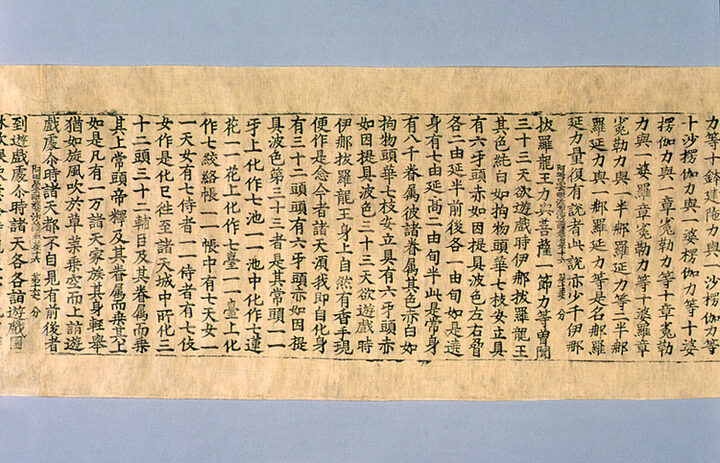 力等十鉢建陁力與一沙楞伽力等
十沙楞伽力與一婆楞伽力等十婆
楞伽力與一章宪勒力等十章宪勒
力與一婆羅章宪勒力等十婆羅章
宪勒力與一半那羅延力等二半那
羅延力與一那羅延力等是名那羅
延力量復有說者此說亦少千伊那
拔羅龍王力與菩薩一節力等曾聞
三十三天欲遊戲時伊那拔羅龍王
其色純白如拘物頭華七枝女立具
有六牙頭赤如因提具波色左右脅
各二由延半前後各一由旬如是遶
身有七由延高一由旬半此是常身
有八千眷屬彼諸眷屬其色亦白如
拘物頭華七枝女立具有六牙頭赤
如因提具波色三十三天欲遊戲時
伊那拔羅龍王身上自然有香手現
便作是念今者諸天湏我即自化身
有三十二頭頭有六牙頭赤如因提
具波色第三十三者是其常頭一一
牙上化作七池一一池中化作七蓮
花一一花上化作七臺一一臺上化
作七絞絡帳一一帳中有七天女一
一天女有七侍者一一侍者有七伎
女作是化已往至諸天城中時化三
十二頭三十二輔臣及其眷屬而乘
其上常頭帝釋及其眷屬而乘其上
如是凡有一万諸天家族其身輕舉
猶如旋風吹於草葉乘空而上詣遊
戲處尒時諸天都不自見有前後者
到遊戲處尒時諸天各各詣遊戲園